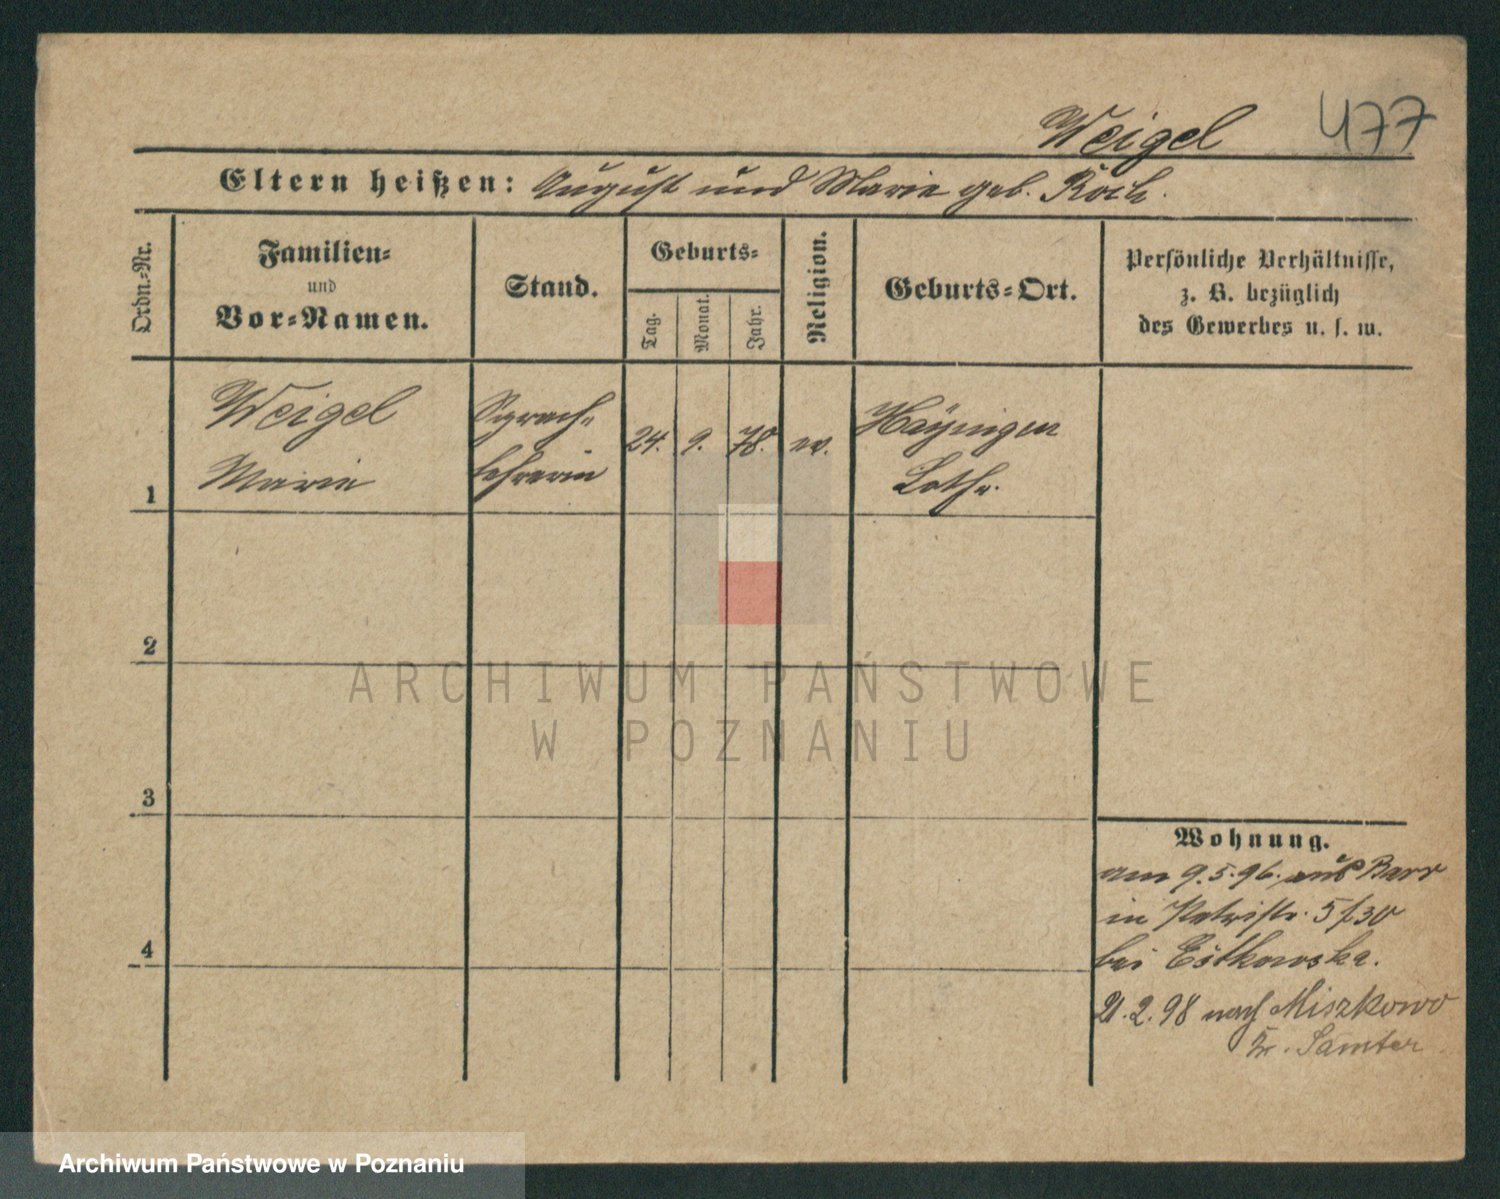 Weigel 477
Eltern heißen: August und Marie geb. Koch.
Ordn.-Nr.
Familien-
und
Vor-Namen.
Stand.
Geburts-
Tag.
Monat.
Jahr.
Religion.
Geburts-Ort.
Persönliche Verhältnisse,
z. B. bezüglich
des Gewerbes u. s. w.
1
Weigel
Marie
Sprach-
lehrerin
24. 9. 78. ev.
Häyingen
Lothr.
2
ARCHIWUM PAŃSTWOWE
W POZNANIU
3
Wohnung.
am 9.5.96. aus Barr
in Petristr. 5/30
bei Estkowska.
21.2.98 nach Miszkowo
Kr. Samter
4
Archiwum Państwowe w Poznaniu